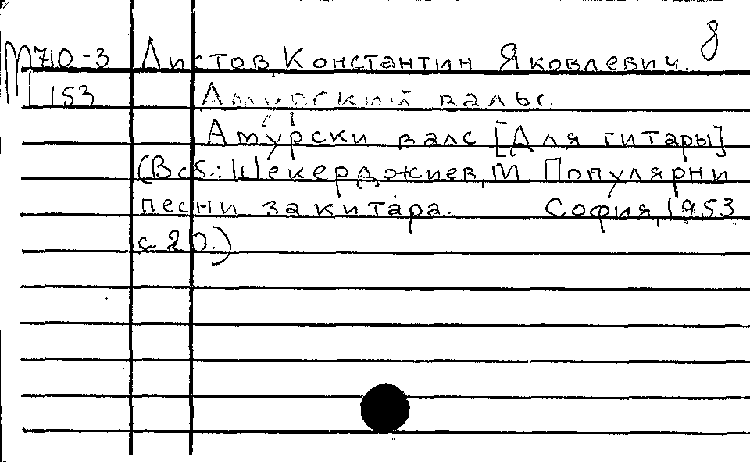 8
М710-3 Листов, Константин Яковлевич.
153 Амурский вальс.
Амурски валс [Для гитары]
(В сб.: Шекерджиев, М Популярни
песни за китара. София, 1953
с 20.)